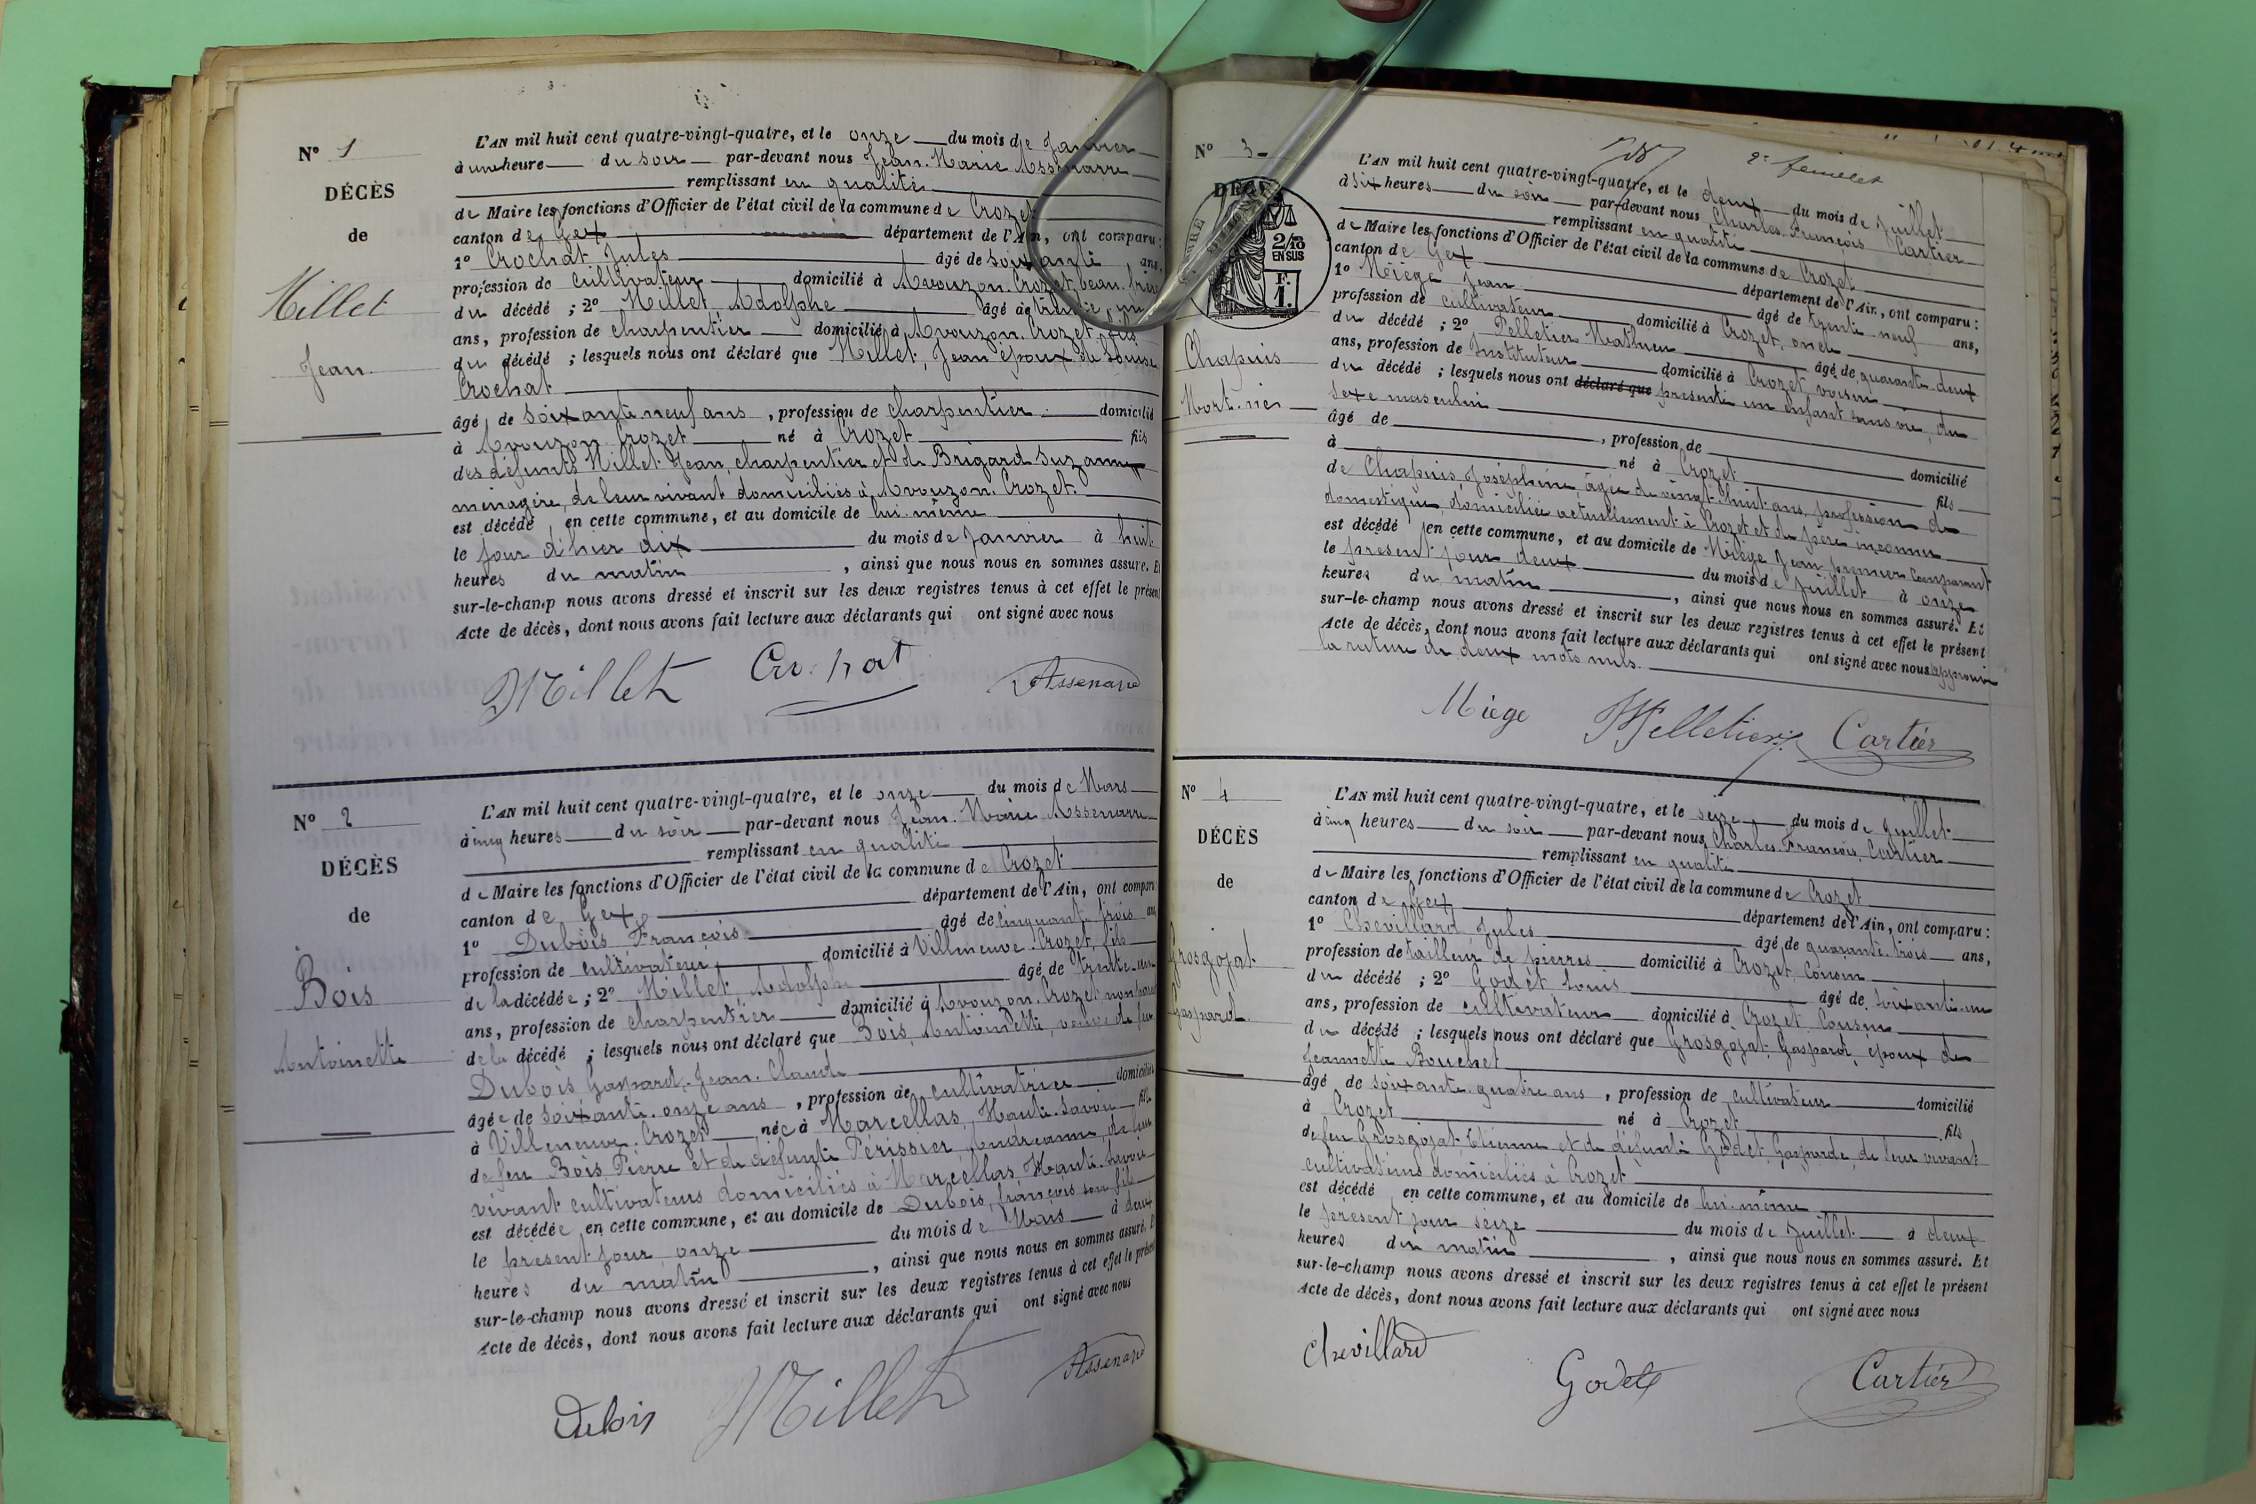 Nº 1
DÉCÈS
de
Millet
Jean
L'AN mil huit cent quatre-vingt-quatre, et le onze du mois de Janvier
à une heure du soir par-devant nous Jean-Marie Assenarre
remplissant en qualité
de Maire les fonctions d'Officier de l'état civil de la commune de Crozet
canton de Gex département de l'Ain, ont comparu:
1º Crochat Jules âgé de soixante ans,
profession de cultivateur domicilié à Avouzon. Crozet, beau-frère
du décédé ; 2º Millet Adolphe âgé de trente un
ans, profession de charpentier domicilié à Avouzon. Crozet, fils
du décédé ; lesquels nous ont déclaré que Millet, Jean époux de Louise
Crochat
âgé de soixante neuf ans, profession de charpentier domicilié
à Avouzon. Crozet né à Crozet fils
des défunts Millet Jean, charpentier et de Brigard Suzanne
ménagère, de leur vivant domiciliés à Avouzon. Crozet.
est décédé en cette commune, et au domicile de lui-même
le jour d'hier dix du mois de Janvier à huit
heures du matin, ainsi que nous nous en sommes assuré. Et
sur-le-champ nous avons dressé et inscrit sur les deux registres tenus à cet effet le présent
Acte de décès, dont nous avons fait lecture aux déclarants qui ont signé avec nous
Millet Crochat Assenare
Nº 2
DÉCÈS
de
Bois
Antoinette
L'AN mil huit cent quatre-vingt-quatre, et le onze du mois de Mars
à cinq heures du soir par-devant nous Jean-Marie Assenarre
remplissant en qualité
de Maire les fonctions d'Officier de l'état civil de la commune de Crozet
canton de Gex département de l'Ain, ont comparu
1º Dubois François âgé de cinquante trois ans
profession de cultivateur domicilié à Villeneuve. Crozet, fils
de la décédée ; 2º Millet Adolphe âgé de trente-un
ans, profession de charpentier domicilié à Avouzon. Crozet non parent
de la décédé ; lesquels nous ont déclaré que Bois, Antoinette, veuve de feu
Dubois Gaspard-Jean-Claude
âgée de soixante-onze ans, profession de cultivatrice domicilié
à Villeneuve. Crozet née à Marcellas, Haute-Savoie fille
de feu Bois, Pierre et de défunte Périssier, Andréanne, de leur
vivant cultivateurs domiciliés à Marcellas, Haute-Savoie
est décédée en cette commune, et au domicile de Dubois, françois son fils
le présent jour onze du mois de Mars à deux
heures du matin, ainsi que nous nous en sommes assuré. Et
sur-le-champ nous avons dressé et inscrit sur les deux registres tenus à cet effet le présent
Acte de décès, dont nous avons fait lecture aux déclarants qui ont signé avec nous
Dubois Millet Assenare
2e feuillet
Nº 3
DÉCÈS
2/10
EN SUS
F.
1.
Chapuis
Mort-né
L'AN mil huit cent quatre-vingt-quatre, et le deux du mois de Juillet
à six heures du soir par-devant nous Charles-François Cartier
remplissant en qualité
de Maire les fonctions d'Officier de l'état civil de la commune de Crozet
canton de Gex département de l'Ain, ont comparu :
1º Miège Jean âgé de trente neuf ans,
profession de cultivateur domicilié à Crozet, oncle
du décédé ; 2º Pelletier Mathieu âgé de quarante-deux
ans, profession de Instituteur domicilié à Crozet, voisin
du décédé ; lesquels nous ont déclaré que présenté un enfant sans vie, du
sexe masculin
âgé de , profession de domicilié
à né à Crozet fils
de Chapuis, Joséphine, âgée de vingt-huit ans, profession de
domestique, domiciliée actuellement à Crozet et de père inconnu
est décédé en cette commune, et au domicile de Miège Jean premier comparant
le présent jour deux du mois de Juillet à onze
heures du matin, ainsi que nous nous en sommes assuré. Et
sur-le-champ nous avons dressé et inscrit sur les deux registres tenus à cet effet le présent
Acte de décès, dont nous avons fait lecture aux déclarants qui ont signé avec nous approuvé
la rature de deux mots nuls.
Miége Pelletier Cartier
Nº 4
DÉCÈS
de
Grosgojat
Gaspard
L'AN mil huit cent quatre-vingt-quatre, et le seize du mois de Juillet
à cinq heures du soir par-devant nous Charles-François Cartier
remplissant en qualité
de Maire les fonctions d'Officier de l'état civil de la commune de Crozet
canton de Gex département de l'Ain, ont comparu :
1º Chevillard Jules âgé de quarante-trois ans,
profession de tailleur de pierres domicilié à Crozet, cousin
du décédé ; 2º Godet Louis âgé de soixante-un
ans, profession de cultivateur domicilié à Crozet, Cousin
du décédé ; lesquels nous ont déclaré que Grosgojat, Gaspard, époux de
Jeannette Bouchet
âgé de soixante-quatre ans, profession de cultivateur domicilié
à Crozet né à Crozet fils
de feu Grosgojat, Etienne et de défunte Godet, Gasparde, de leur vivant
cultivateurs domiciliés à Crozet
est décédé en cette commune, et au domicile de lui-même
le présent jour seize du mois de Juillet à deux
heures du matin, ainsi que nous nous en sommes assuré. Et
sur-le-champ nous avons dressé et inscrit sur les deux registres tenus à cet effet le présent
Acte de décès, dont nous avons fait lecture aux déclarants qui ont signé avec nous
Chevillard Godet Cartier